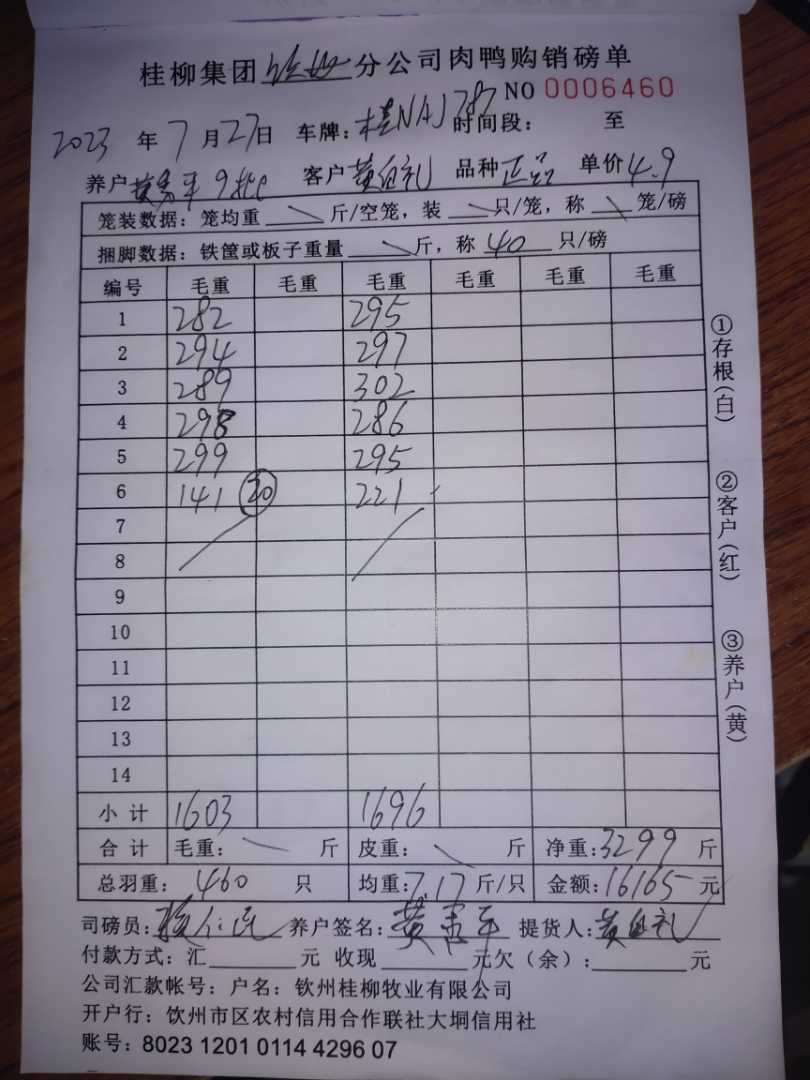 桂柳集团钦州分公司肉鸭购销磅单
NO 0006460
2023 年 7 月 27 日 车牌：桂NAJ787 时间段： 至
养户 黄秀平 9批 客户 黄自礼 品种 正品 单价 4.9
笼装数据：笼均重 斤/空笼，装 只/笼，称 笼/磅
捆脚数据：铁筐或板子重量 斤，称 40 只/磅
编号 毛重 毛重 毛重 毛重 毛重 毛重
1 282 295
2 294 297
3 289 302
4 298 286
5 299 295
6 141 20 221
7
8
9
10
11
12
13
14
小计 1603 1696
合计 毛重： 斤 皮重： 斤 净重：3299 斤
总羽重： 460 只 均重：7.17 斤/只 金额：16165 元
司磅员： 养户签名：黄秀平 提货人：黄自礼
付款方式：汇 元 收现 元欠（余）： 元
公司汇款帐号：户名：钦州桂柳牧业有限公司
开户行：饮州市区农村信用合作联社大垌信用社
账号：8023 1201 0114 4296 07
①存根（白）
②客户（红）
③养户（黄）